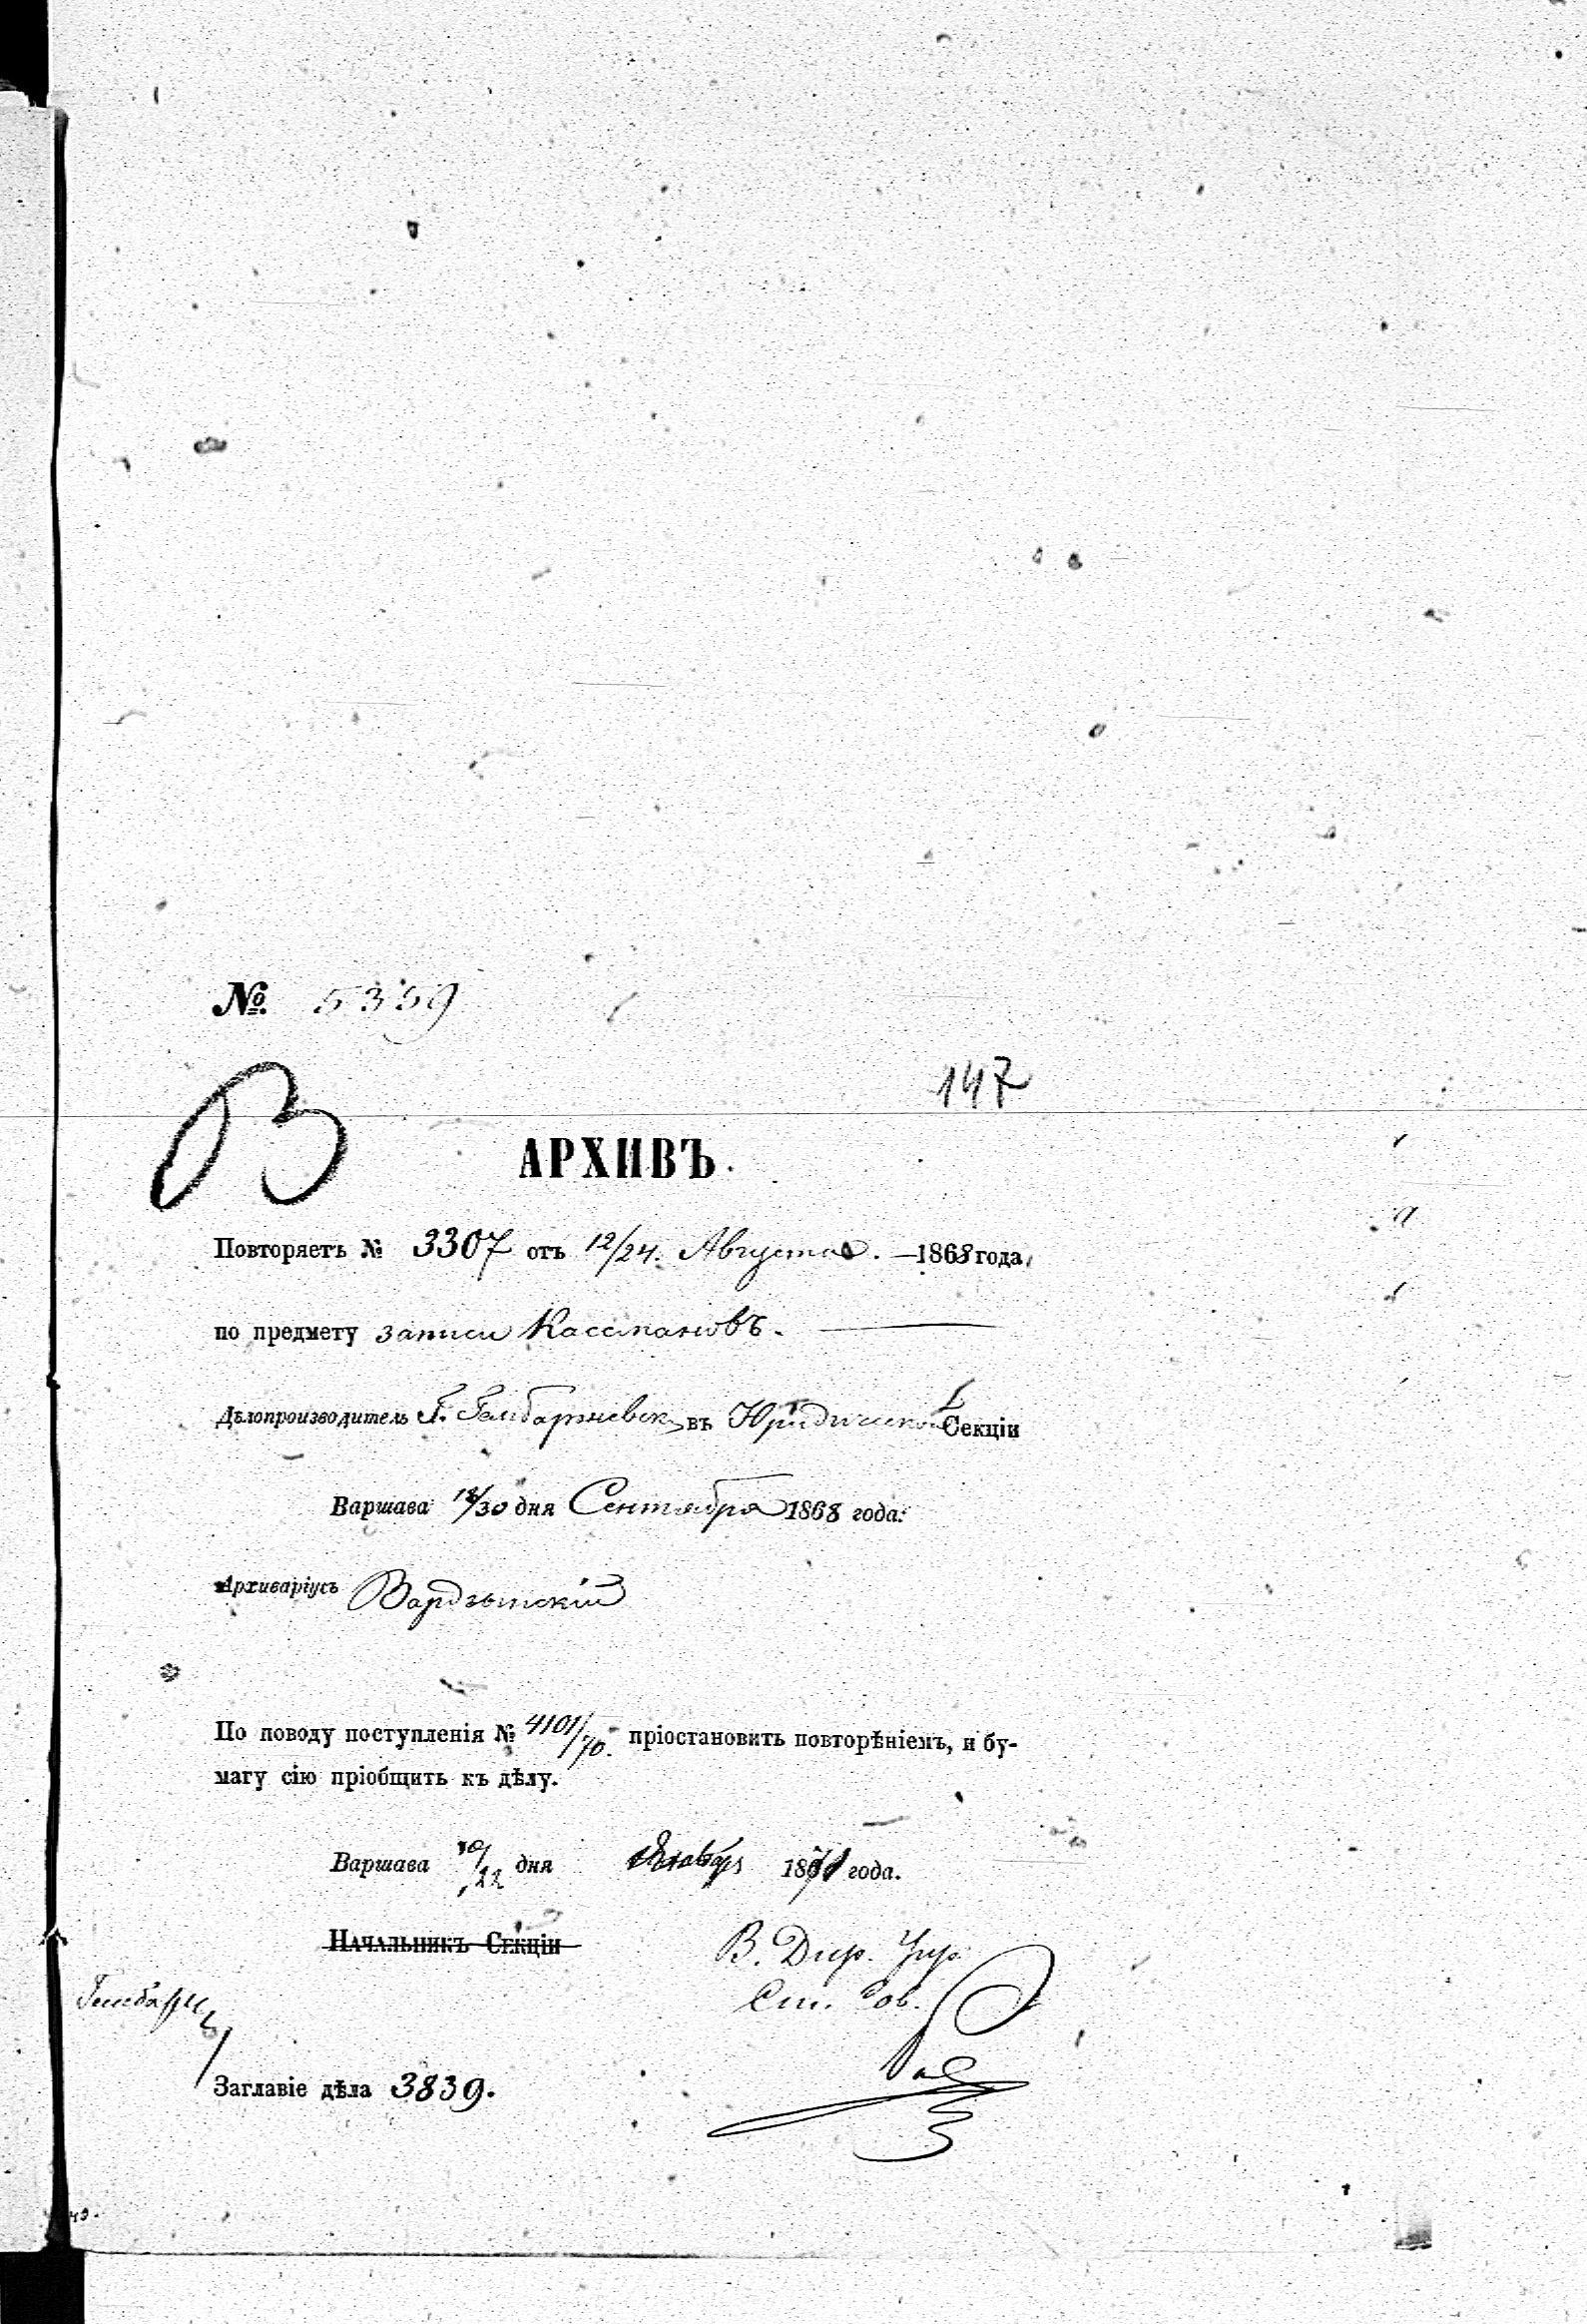 № 5359
147
В
АРХИВЪ.
Повторяетъ № 3307 отъ 12/24. Августа. — 1868 года,
по предмету записи Кассмановъ.
Дѣлопроизводитель Г. въ Юридической Секціи
Варшава 18/30 дня Сентября 1868 года.
Архиваріусъ
По поводу поступленія № 4101/70. пріостановить повтореніемъ, и бу-
магу сію пріобщить къ дѣлу.
Варшава 10/22 дня 1871 года.
Начальникъ Секціи
В. Дир.
Ст. Сов.
Заглавіе дѣла 3839.